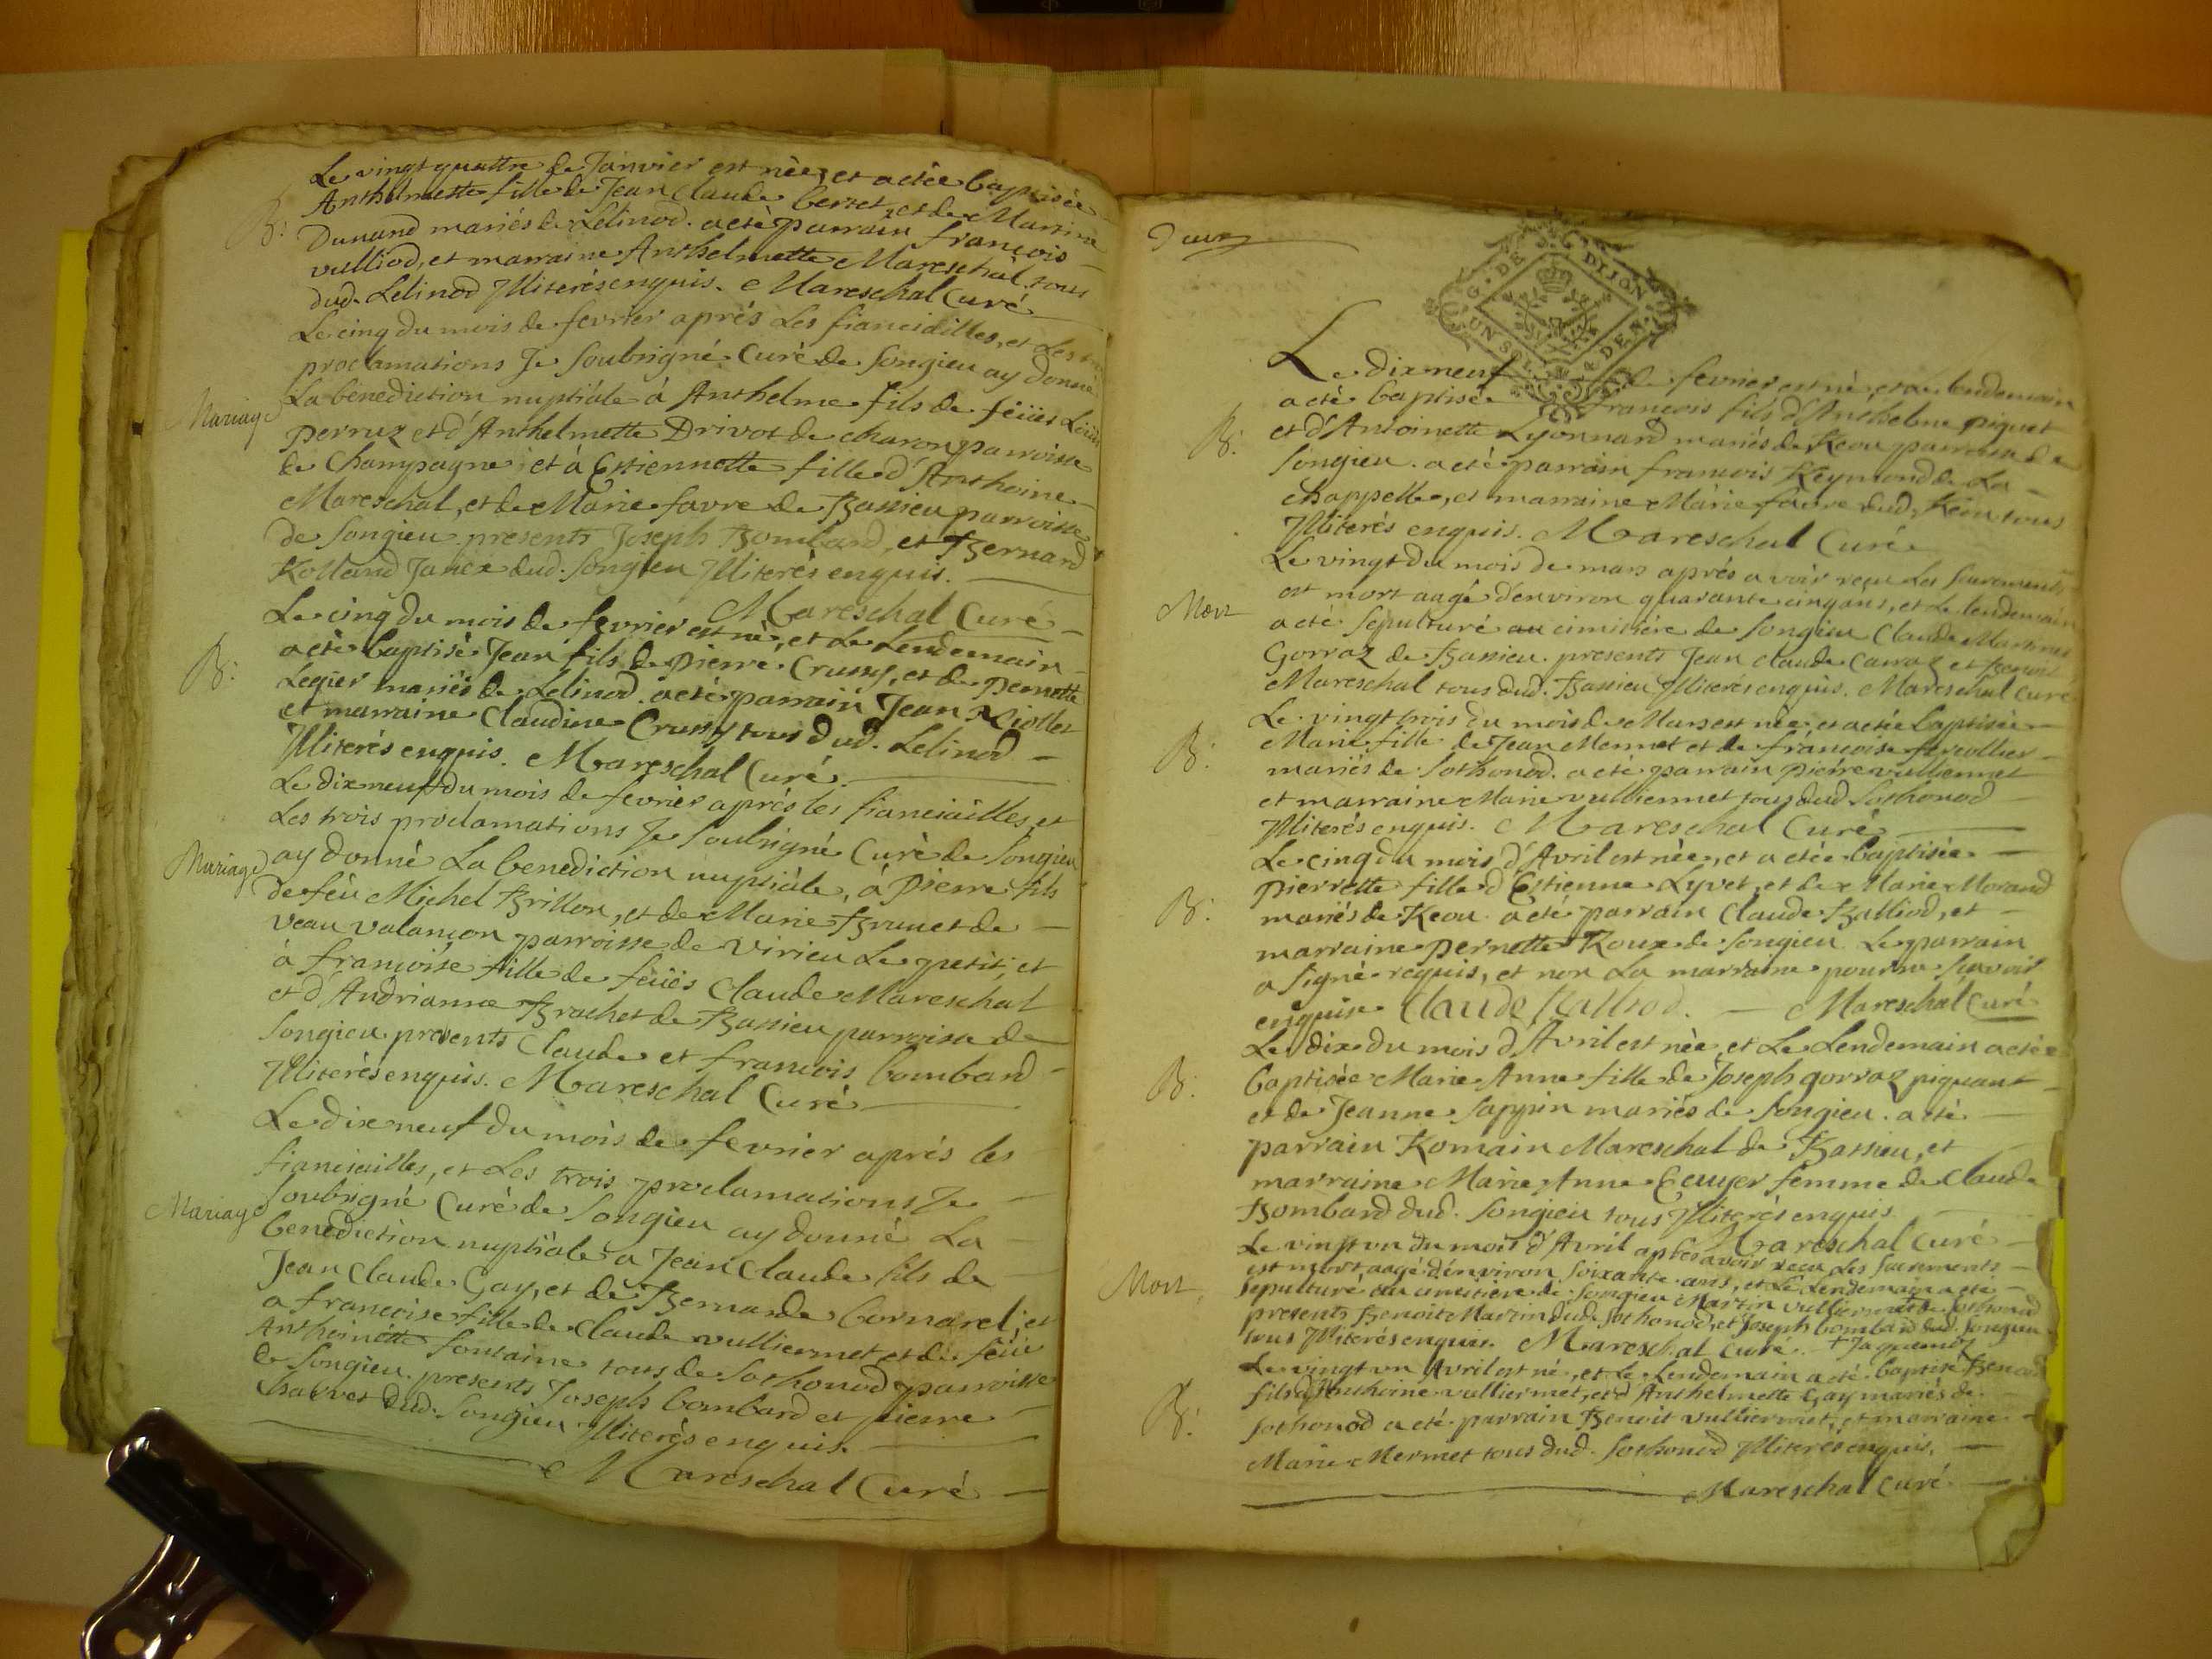 Le vingt quattre de Janvier est née, et a etée baptisée
Anthelmette fille de Jean Claude bertet, et de Martine
B: Dunand mariés de Lelinod. a eté parrain françois
vulliod, et marraine Anthelmette Mareschal tous
dud. Lelinod Illiterés enquis. Mareschal Curé
Le cinq du mois de fevrier aprés Les fianciailles, et Les
proclamations Je soubsigné Curé de Songieu ay donné
Mariage La benediction nuptiale à Anthelme fils de feües
perruz et d'Anthelmette Drivot de charon parroisse
de Champagne; et à Estiennette fille d'Anthoine
Mareschal, et de Marie favre de Bassieu parroisse
de Songieu. presents Joseph Bombard, et Bernard
Rolland Janex dud. Songieu Illiterés enquis.
Mareschal Curé
Le cinq du mois de fevrier est né, et Le Lendemain
B: a eté baptisé Jean fils de pierre Crussy, et de pernette
Legier mariés de Lelinod. a eté parrain Jean Niollet
et marraine Claudine Crussy tous dud. Lelinod
Illiterés enquis. Mareschal Curé
Le dixneuf du mois de fevrier aprés les fianciailles et
Les trois proclamations Je soubsigné Curé de Songieu
Mariage ay donné La benediction nuptiale, à Pierre fils
de feu Michel Brillon, et de Marie Brunet de
veau valançon parroisse de virieu Le petit, et
à françoise fille de feües Claude Mareschal
et d'Andrianne Brachet de Bassieu parroisse de
Songieu presents Claude et françois bombard
Illiterés enquis. Mareschal Curé
Le dixneuf du mois de fevrier aprés les
fianciailles, et Les trois proclamations Je
Mariage soubsigné Curé de Songieu ay donné La
benediction nuptiale a Jean Claude fils de
Jean Claude Gay, et de Bernarde bornarel; et
a francoise fille de Claude vulliermet et de feüe
Anthoinette fontaine tous de Sothonod parroisse
de Songieu. presents Joseph bombard et pierre
Chavvet dud. Songieu Illiterés enquis.
Mareschal Curé
Deux
G. DE DIJON
UN SOL DEN.
Le dixneuf de fevrier est né, et a Le lendemain
a eté baptisé françois fils d'Anthelme piquet
B: et d'Antoinette Lyonnard mariés de Reou parroisse de
Songieu. a eté parrain francois Reymond de La
chappelle, et marraine Marie favre dud. Reou tous
Illiterés enquis. Mareschal Curé
Le vingt du mois de mars aprés avoir reçu Les Sacrements
Mort est mort aagé d'environ quarante cinq ans, et Le lendemain
a eté sepulturé au cimitiére de Songieu Claude Martines
Gorraz de Bassieu. presents Jean claude Carraz et
Mareschal tous dud. Bassieu Illiterés enquis. Mareschal curé
Le vingt trois du mois de Mars est née et a etée baptisée
Marie fille de Jean Mermet et de francoise fercollier
B: mariés de Sothonod. a eté parrain pierre vulliermet
et marraine Marie vulliermet tous dud Sothonod
Illiterés enquis. Mareschal Curé
Le cinq du mois d'Avril est née, et a etée baptisée
pierrette fille d'Estienne Lyvet, et de Marie Morand
B: mariés de Reou a eté parrain Claude Balliod, et
marraine pernette Roux de Songieu. Le parrain
a signé requis, et non La marraine pour ne Sçavoir
enquise Claude Balliod. Mareschal Curé
Le dix du mois d'Avril est née, et Le Lendemain a eté
B: baptisée Marie Anne fille de Joseph gorraz piquant
et de Jeanne Sappin mariés de Songieu. a eté
parrain Romain Mareschal de Bassieu, et
marraine Marie Anne Ecuyer femme de Claude
Bombard dud. Songieu tous Illiterés enquis
Mareschal Curé
Le vingt un du mois d'Avril aprés avoir reçu Les Sacrements
Mort est mort aagé d'environ soixante ans, et Le Lendemain a eté
sepulturé au cimitiere de Songieu Martin vulliermet de Sothonod
presents Benoit Martin dud. Sothonod, et Joseph bombard dud. Songieu
tous Illiterés enquis. Mareschal Curé.
Le vingt un Avril est né, et Le Lendemain a eté baptisé Benoit
fils d'Anthoine vulliermet, et d'Anthelmette Gay mariés de
B: Sothonod a eté parrain Benoit vulliermet, et marraine
Marie Mermet tous dud. Sothonod Illiterés enquis.
Mareschal Curé.